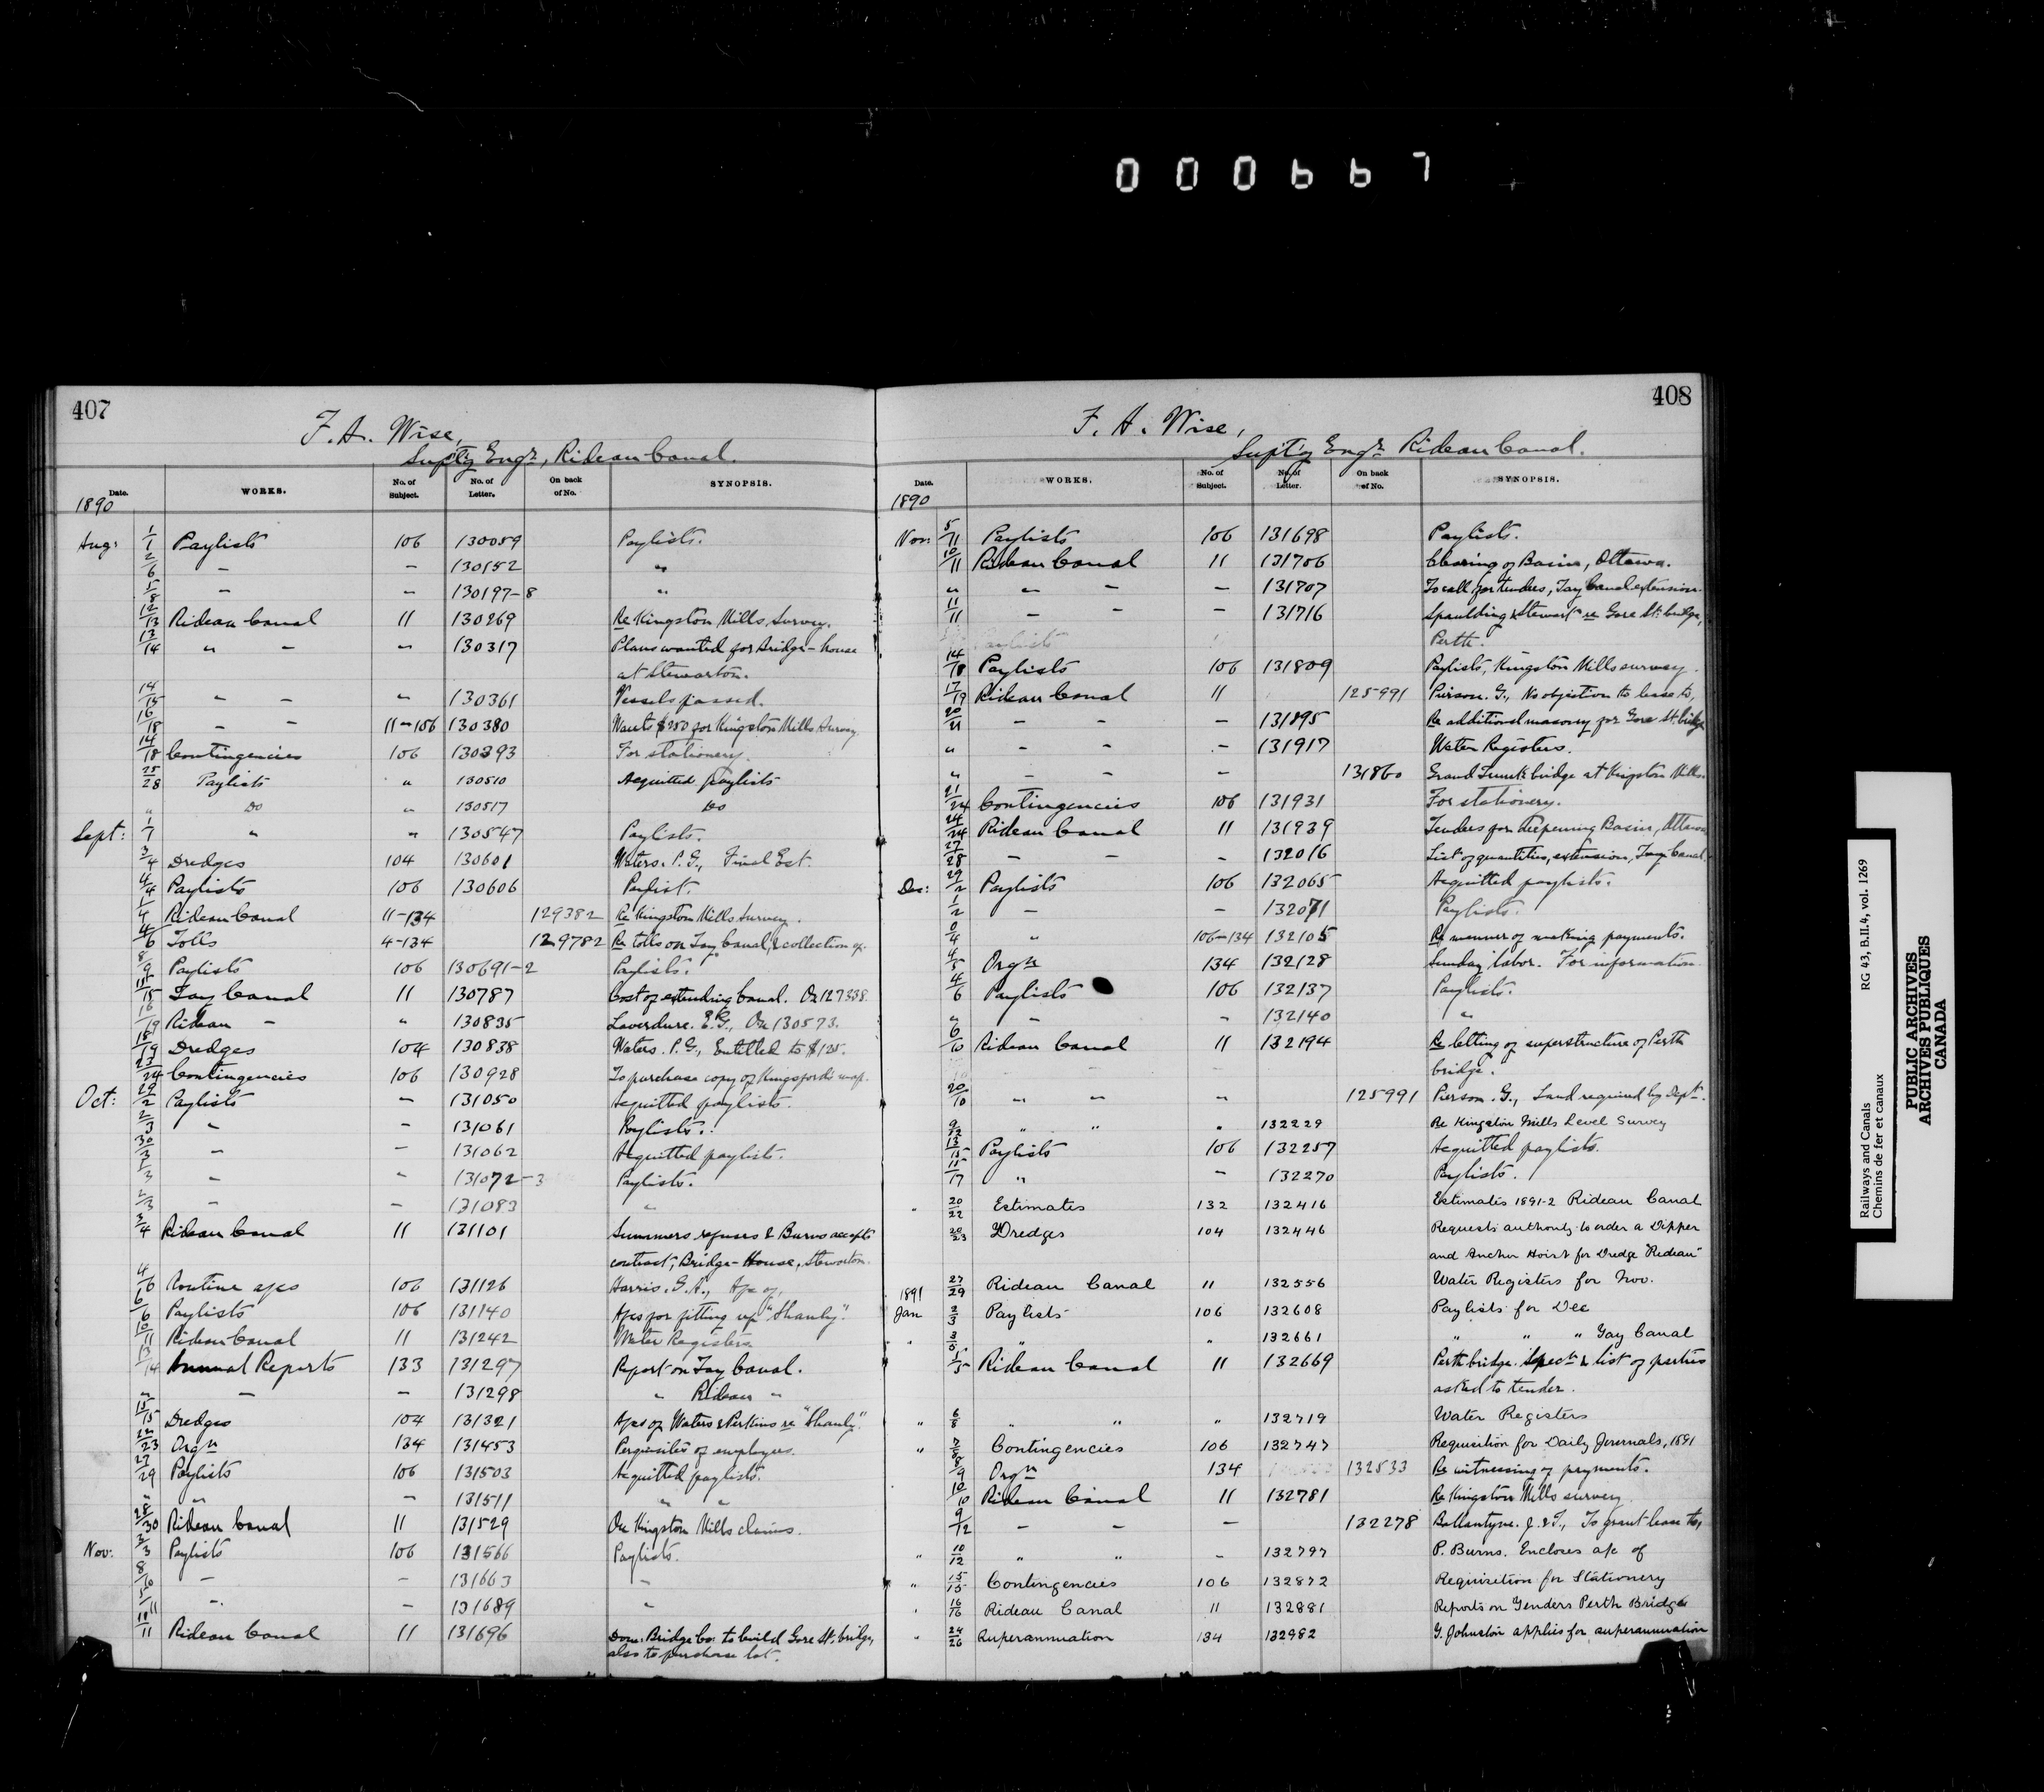 000667
407
F. A. Wise,
Supt'g Engr, Rideau Canal.
Date. WORKS. No. of Subject. No. of Letter. On back of No. SYNOPSIS.
1890
Aug: 1/1 Paylists 106 130059 Paylists.
2/6 – – 130152 "
5/8 – – 130197-8 "
12/13 Rideau Canal 11 130269 Re Kingston Mills Survey.
13/14 " – " 130317 Plans wanted for Bridge-house
at Stewarton.
14/15 " – " 130361 Vessels passed.
16/18 – – 11-106 130380 Wants $250 for Kingston Mills Survey.
14/18 Contingencies 106 130393 For stationery.
25/28 Paylists " 130510 Acquitted paylists
" Do " 130517 Do
Sept: 1/7 " " 130547 Paylists.
3/4 Dredges 104 130601 Waters. P. G., Final Est.
4/4 Paylists 106 130606 Paylist.
1/4 Rideau Canal 11-134 129382 Re Kingston Mills Survey.
4/6 Tolls 4-134 129782 Re tolls on Tay Canal, & collection of.
8/9 Paylists 106 130691-2 Paylists.
15/15 Tay Canal 11 130787 Cost of extending Canal. On 127338.
16/19 Rideau – " 130835 Laverdure. E. G., On 130573.
18/19 Dredges 104 130838 Waters. P. G., Entitled to $125.
23/24 Contingencies 106 130928 To purchase copy of Kingsford's map.
Oct: 29/2 Paylists – 131050 Acquitted paylists.
2/3 " – 131061 Paylists.
30/3 – – 131062 Acquitted paylists.
1/3 – – 131072-3 Paylists.
2/3 – – 131083 "
3/4 Rideau Canal 11 131101 Summers refuses & Burns accepts
contract, Bridge-House, Stewarton.
4/6 Routine a/cs 106 131126 Harris. G. A., A/c of,
6/6 Paylists 106 131140 A/cs for fitting up "Shanly".
10/11 Rideau Canal 11 131242 Water Registers
13/14 Annual Reports 133 131297 Report on Tay Canal.
" – – 131298 " Rideau "
15/15 Dredges 104 131321 A/cs of Waters & Perkins re "Shanly".
22/23 Orgn 134 131453 Perquisites of employees.
27/29 Paylists 106 131503 Acquitted paylists.
" " – 131511 " "
28/30 Rideau Canal 11 131529 On Kingston Mills claims.
Nov. 3/3 Paylists 106 131566 Paylists.
8/10 – – 131663 "
5/11 – – 131689 "
10/11 Rideau Canal 11 131696 Dom: Bridge Co: to build Gore St. bridge,
also to purchase lot.
408
F. A. Wise,
Supt'g Engr Rideau Canal.
Date. WORKS. No. of Subject. No. of Letter. On back of No. SYNOPSIS.
1890
Nov: 5/11 Paylists 106 131698 Paylists.
10/11 Rideau Canal 11 131706 Clearing of Basin, Ottawa.
" " – – 131707 To call for tenders, Tay Canal extension.
11/11 – – – 131716 Spaulding & Stewart re Gore St. bridge,
Perth.
14/18 Paylists 106 131809 Paylists, Kingston Mills survey.
17/19 Rideau Canal 11 125991 Pierson. G., No objection to lease to,
20/21 – – – 131895 Re additional masonry for Gore St. bridge
" – – – 131917 Water Registers.
" – – – 131860 Grand Trunk bridge at Kingston Mills.
21/24 Contingencies 106 131931 For stationery.
24/24 Rideau Canal 11 131939 Tenders for deepening Basin, Ottawa
27/28 – – – 132016 List of quantities, extension, Tay Canal
Dec: 29/2 Paylists 106 132065 Acquitted paylists.
1/2 – – 132071 Paylists.
/4 " 106-134 132105 Re manner of making payments.
4/5 Orgn 134 132128 Sunday labor. For information.
4/6 Paylists 106 132137 Paylists.
" " " 132140 "
6/10 Rideau Canal 11 132194 Re letting of superstructure of Perth
bridge.
20/10 " " " 125991 Pierson. G., Land required by Dept.
9/12 " " " 132229 Re Kingston Mills Level Survey
13/15 Paylists 106 132257 Acquitted paylists.
15/17 " – 132270 Paylists.
" 20/22 Estimates 132 132416 Estimates 1891-2 Rideau Canal
20/23 Dredges 104 132446 Requests authority to order a Dipper
and Anchor Hoist for Dredge "Rideau"
27/29 Rideau Canal 11 132556 Water Registers for Nov.
1891
Jan 2/3 Paylists 106 132608 Paylists for Dec
" 3/5 " " 132661 " " " Tay Canal
1/5 Rideau Canal 11 132669 Perth bridge. Specn & list of parties
asked to tender.
" 6/8 " " " 132719 Water Registers
" 7/8 Contingencies 106 132747 Requisition for Daily Journals, 1891
8/9 Orgn 134 132533 Re witnessing of payments.
10/10 Rideau Canal 11 132781 Re Kingston Mills survey
9/12 – – – 132278 Ballantyne. J. & T., To grant lease to,
" 10/12 " " " 132797 P. Burns. Encloses a/c of
" 15/15 Contingencies 106 132872 Requisition for Stationery
" 16/16 Rideau Canal 11 132881 Reports on Tenders Perth Bridge
" 24/26 Superannuation 134 132982 G. Johnston applies for superannuation
Railways and Canals RG 43, B.II.4, vol. 1269
Chemins de fer et canaux
PUBLIC ARCHIVES
ARCHIVES PUBLIQUES
CANADA